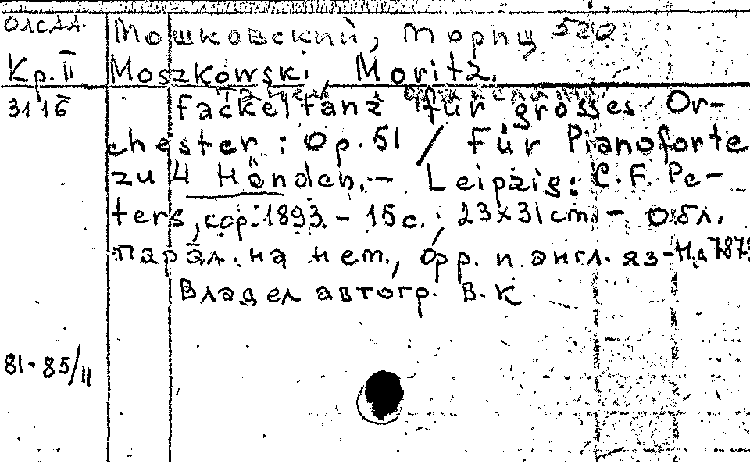 ОЛСАА
Мошковский, Мориц 500
Кр. II Moszkowski, Moritz.
3116 Fackeltanz für grosses Or-
chester : Op. 51 / Für Pianoforte
zu 4 Händen. – Leipzig: C. F. Pe-
ters, cop. 1893. – 15 с. ; 23x31 cm. – Обл.
парал. на нем., фр. и англ. яз – Н.д 787
Владел автогр. В. К
81-85/II